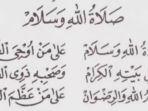 صَلَاةُ اللهِ وَسَلَامْ
ةُ اللهِ وَسَلَامْ عَلَى مَنْ اُوْحِيَ
بَيْتِهِ الْكِرَامْ وَصَحْبِهِ ذَوِى
اللهِ وَالرِّضْوَانْ عَلَى مَنْ عَظَّمَ